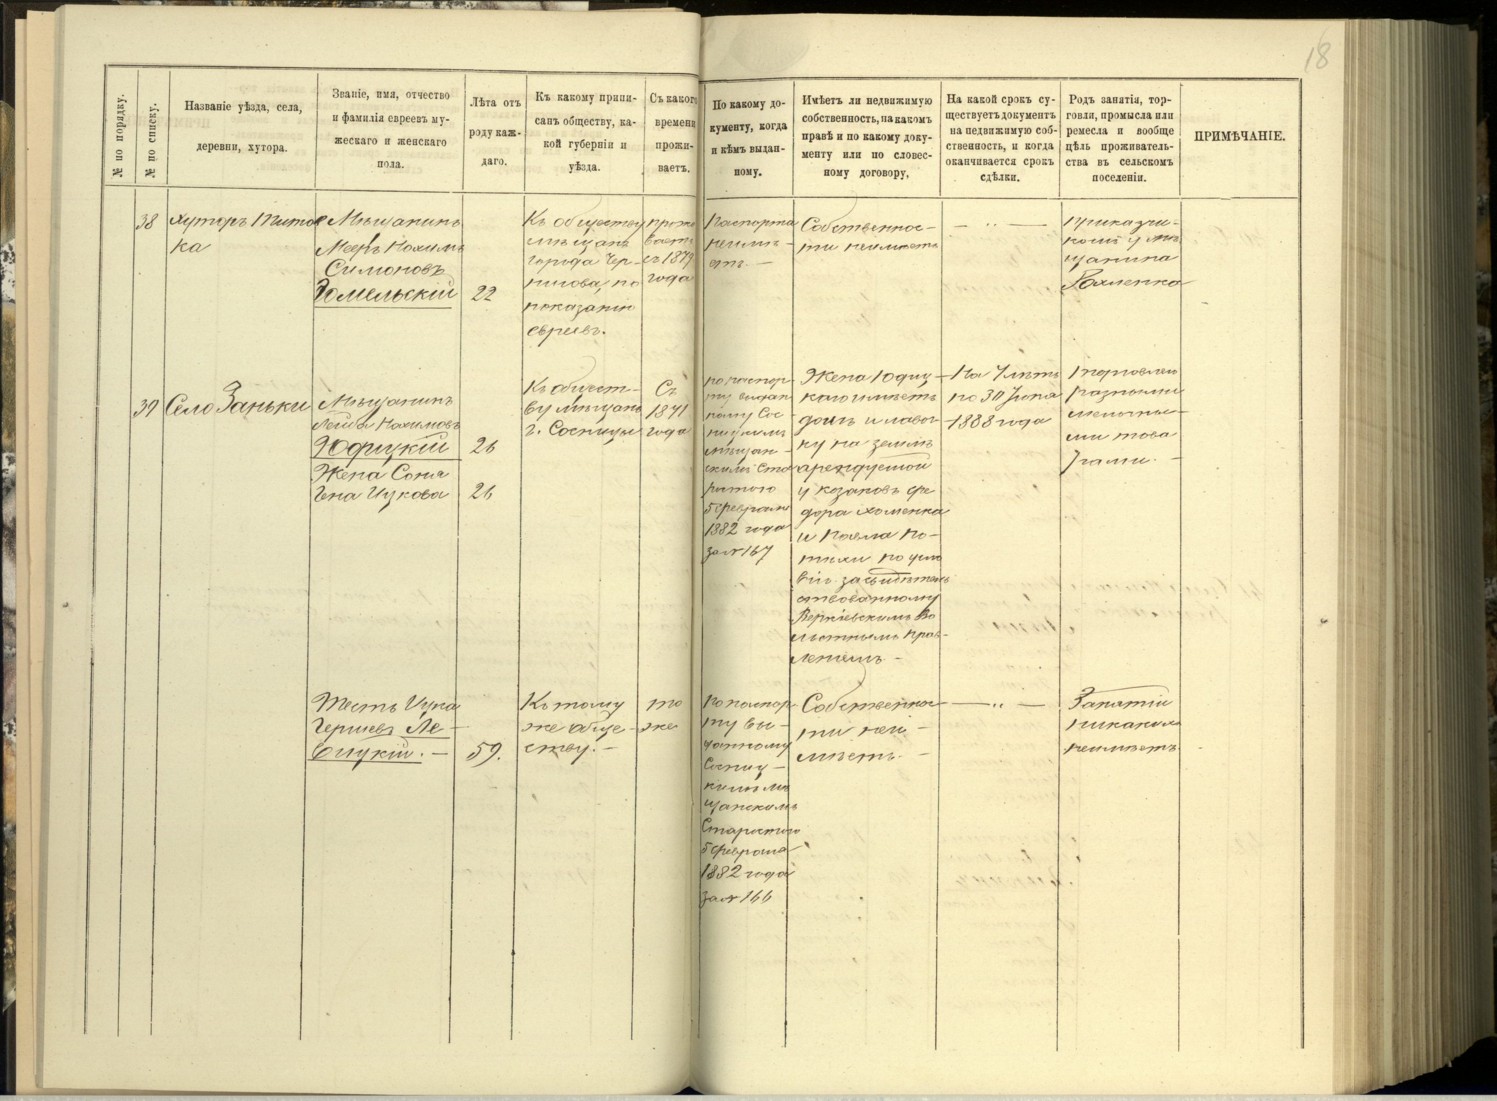 18
№ по порядку.
№ по списку.
Названіе уѣзда, села,
деревни, хутора.
Званіе, имя, отчество
и фамилія евреевъ му-
жескаго и женскаго
пола.
Лѣта отъ
роду каж-
даго.
Къ какому припи-
санъ обществу, ка-
кой губерніи и
уѣзда.
Съ какого
времени
прожи-
ваетъ.
По какому до-
кументу, когда
и кѣмъ выдан-
ному.
Имѣетъ ли недвижимую
собственность, на какомъ
правѣ и по какому доку-
менту или по словес-
ному договору,
На какой срокъ су-
ществуетъ документъ
на недвижимую соб-
ственность, и когда
оканчивается срокъ
сдѣлки.
Родъ занятія, тор-
говли, промысла или
ремесла и вообще
цѣль проживатель-
ства въ сельскомъ
поселеніи.
ПРИМѢЧАНІЕ.
38
Хуторъ
ка
Мѣщанинъ
Нохимъ
Симоновъ
Гомельскій
22
Къ обществу
мѣщанъ
города Чер-
нигова, по
показанію
евреевъ.
прожи
ваетъ
съ 1879
года
Паспорта
неимѣ-
етъ. —
Собственнос-
ти неимѣетъ
— „ —
Приказчи-
комъ у мѣ
щанина
39
Село Заньки
Мѣщанинъ
Лейба Нохимовъ
Юдицкій
26
Жена Соня
Гена Ицкова
26
Къ общест-
ву мѣщанъ
г. Сосницы
Съ
1871
года
по паспор
ту выдан
ному Сос-
ницкимъ
мѣщан-
скимъ Ста
ростою
5 февраля
1882 года
за № 167
Жена Юдиц-
каго имѣетъ
домъ и лавоч
ку на землѣ
арендуемой
у козаковъ Фе
дора Хоменка
и Павла По-
по усло
вію засвидѣтель
ствованному
Веркіевскимъ Во
лостнымъ Прав-
леніемъ —
На 7 лѣтъ
по 30
1888 года
Торговлею
разными
мелочны-
ми това
рами. —
Тесть Ицка
Гершевъ Ле-
вицкій. —
59.
Къ тому
же обще-
ству. —
то
же
По паспор
ту вы-
данному
Сосниц-
кимъ мѣ
щанскимъ
Старостою
5 февраля
1882 года
за № 166
Собственнос-
ти неи-
мѣетъ. —
— „ —
Занятій
никакихъ
неимѣетъ